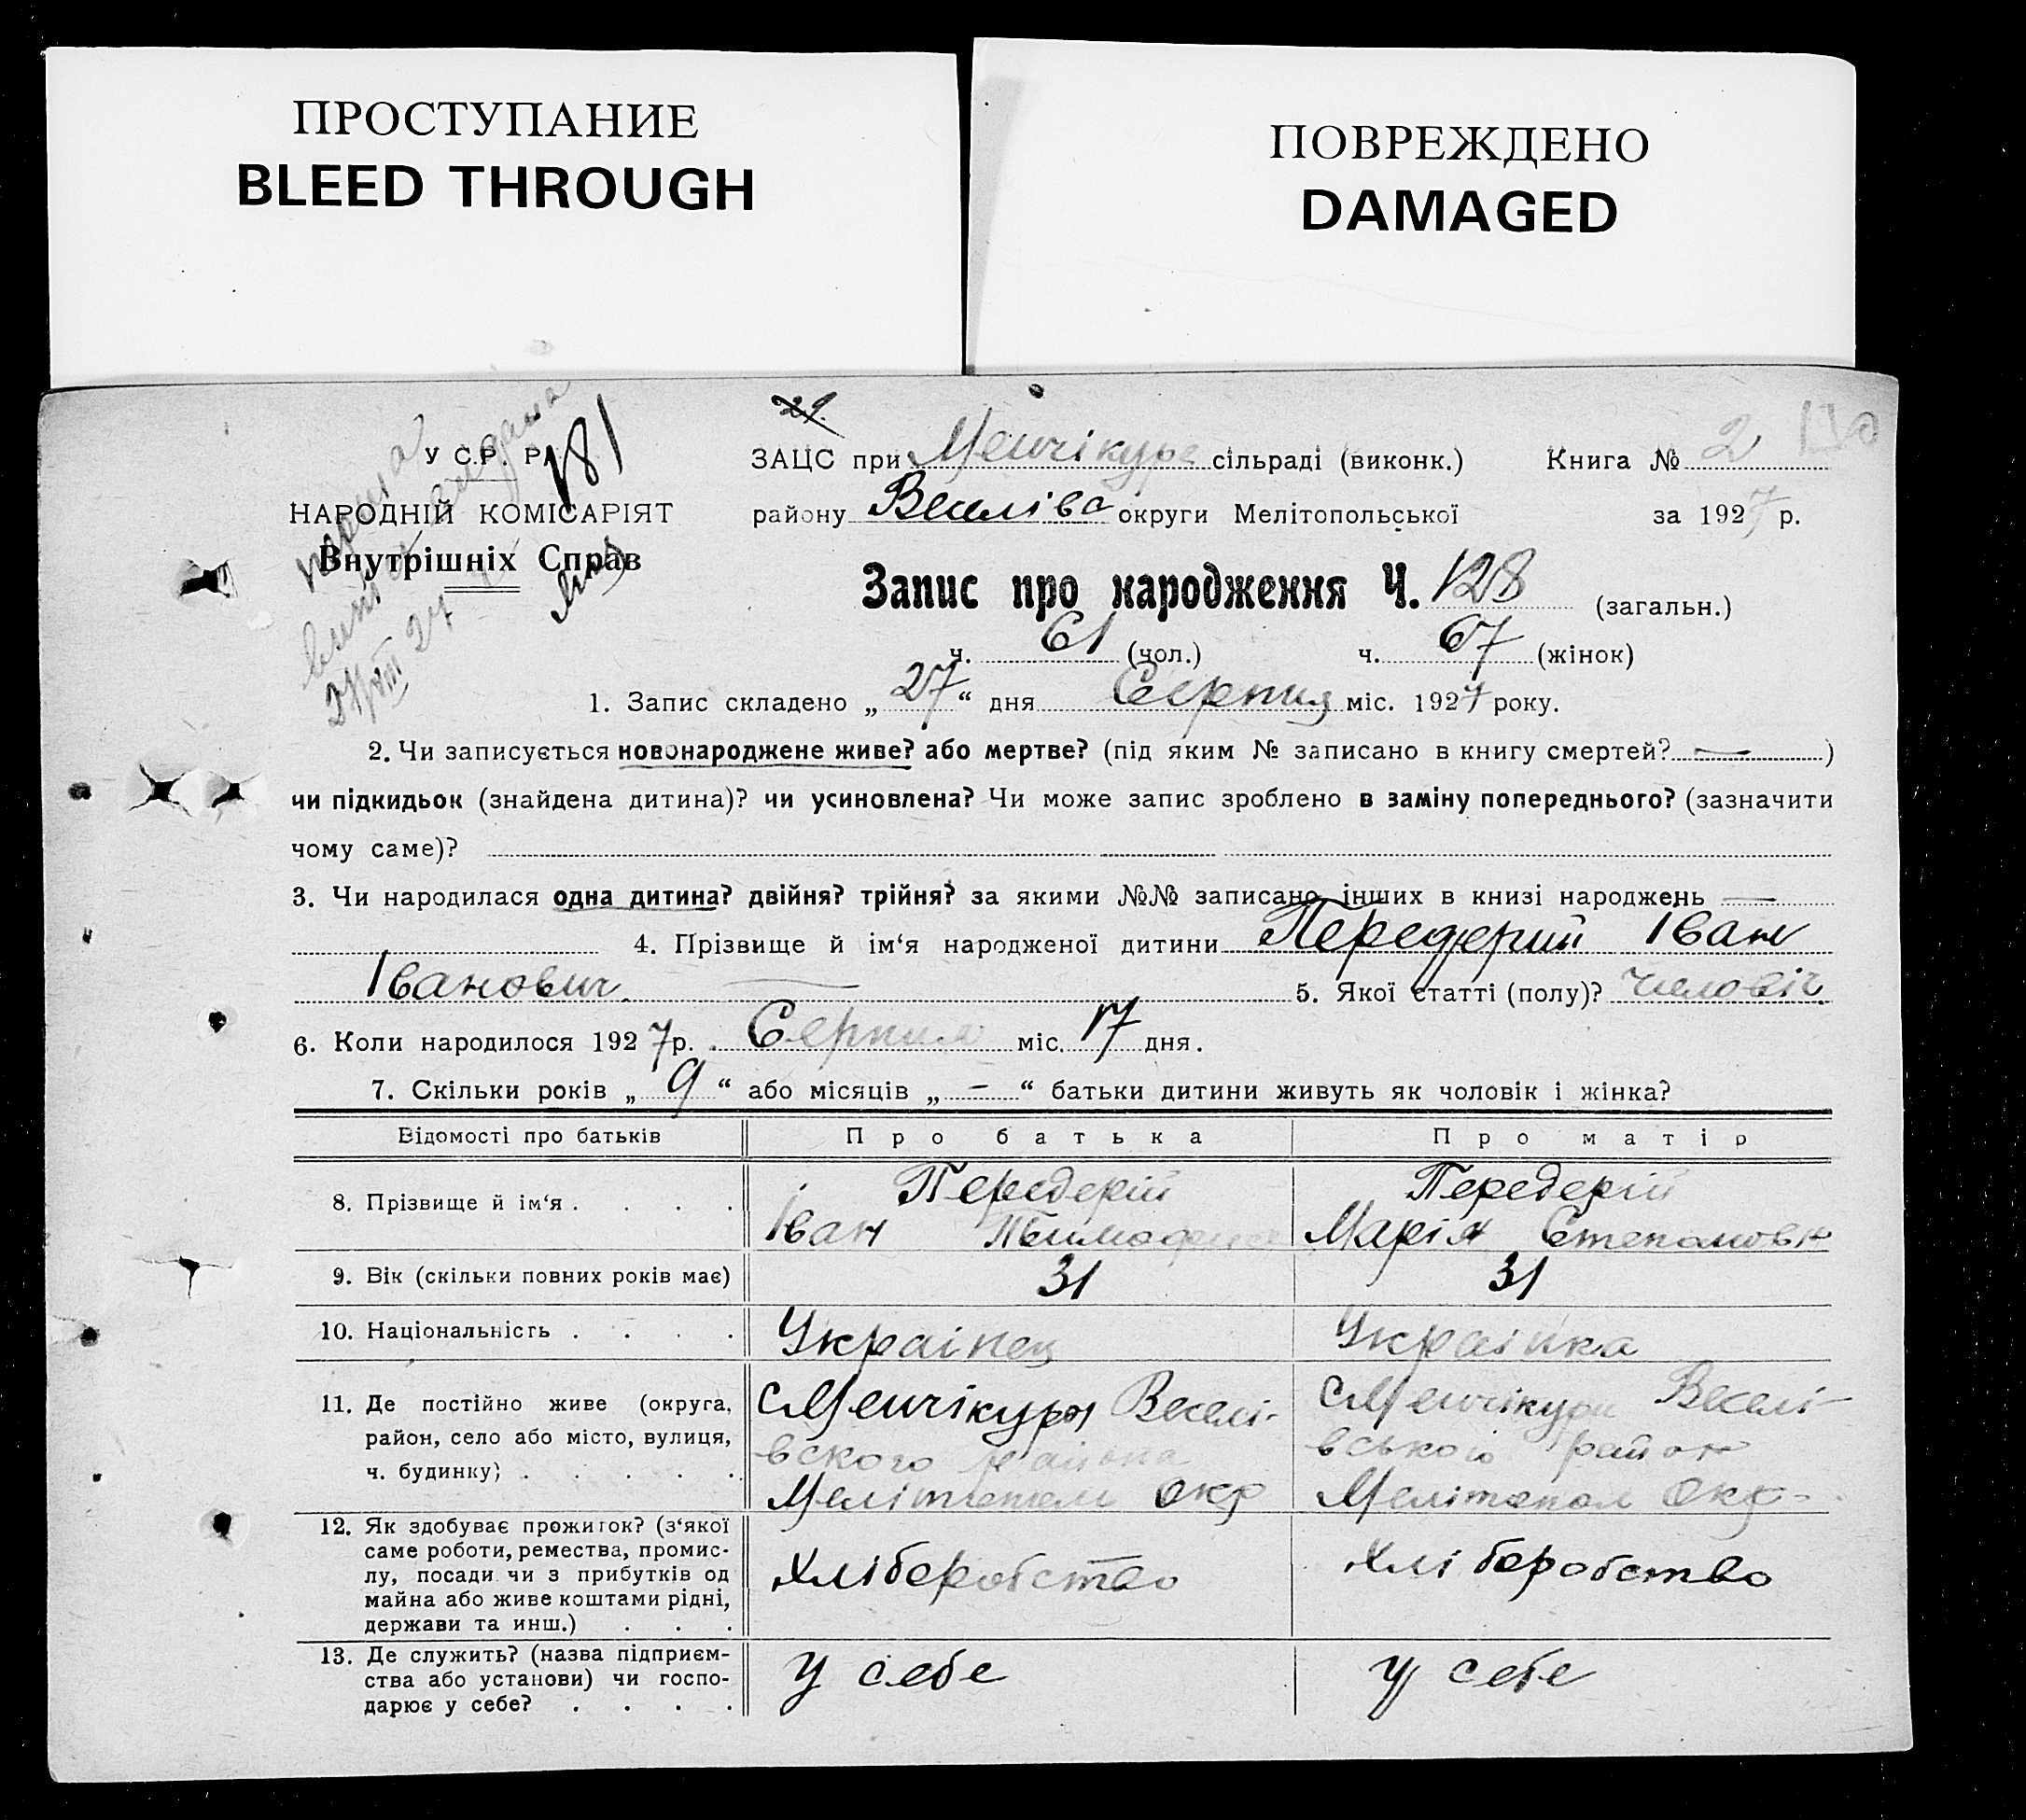 ПРОСТУПАНИЕ
BLEED THROUGH
ПОВРЕЖДЕНО
DAMAGED
29.
181
У С.Р. Р.
НАРОДНІЙ КОМІСАРІЯТ
Внутрішніх Справ
ЗАЦС при Менчікурс сільраді (виконк.) Книга № 2
району Веселіва округи Мелітопольської за 1927 р.
Запис про народження Ч. 128 (загальн.)
ч. 61 (чол.) ч. 67 (жінок)
1. Запис складено „ 27 “ дня Серпня міс. 1927 року.
2. Чи записується новонароджене живе? або мертве? (під яким № записано в книгу смертей? — )
чи підкидьок (знайдена дитина)? чи усиновлена? Чи може запис зроблено в заміну попереднього? (зазначити
чому саме)?
3. Чи народилася одна дитина? двійня? трійня? за якими №№ записано інших в книзі народжень —
4. Прізвище й ім‘я народженої дитини Передерий Іван
Іванович 5. Якої статті (полу)? Чиловіч.
6. Коли народилося 1927 р. Серпня міс. 17 дня.
7. Скільки років „ 9 “ або місяців „ - “ батьки дитини живуть як чоловік і жінка?
Відомості про батьків Про батька Про матір
8. Прізвище й ім‘я . . . . Передерій Передерій
Іван Тимофие Марія Степановн
9. Вік (скільки повних років має) 31 31
10. Національність . . . . Украінец Украінка
11. Де постійно живе (округа, район, село або місто, вулиця, ч. будинку) . . . . .
с Менчікури Веселі-
вского района
Мелітополь окр
с Менчікури Веселі-
вськоі район
Мелітопол Окр-
12. Як здобуває прожиток? (з‘якої
саме роботи, ремества, промис-
лу, посади чи з прибутків од
майна або живе коштами рідні,
держави та инш.) . . .
Хліборобство Хліборобство
13. Де служить? (назва підприєм-
ства або установи) чи госпо-
дарює у себе? . . . .
у себе у себе